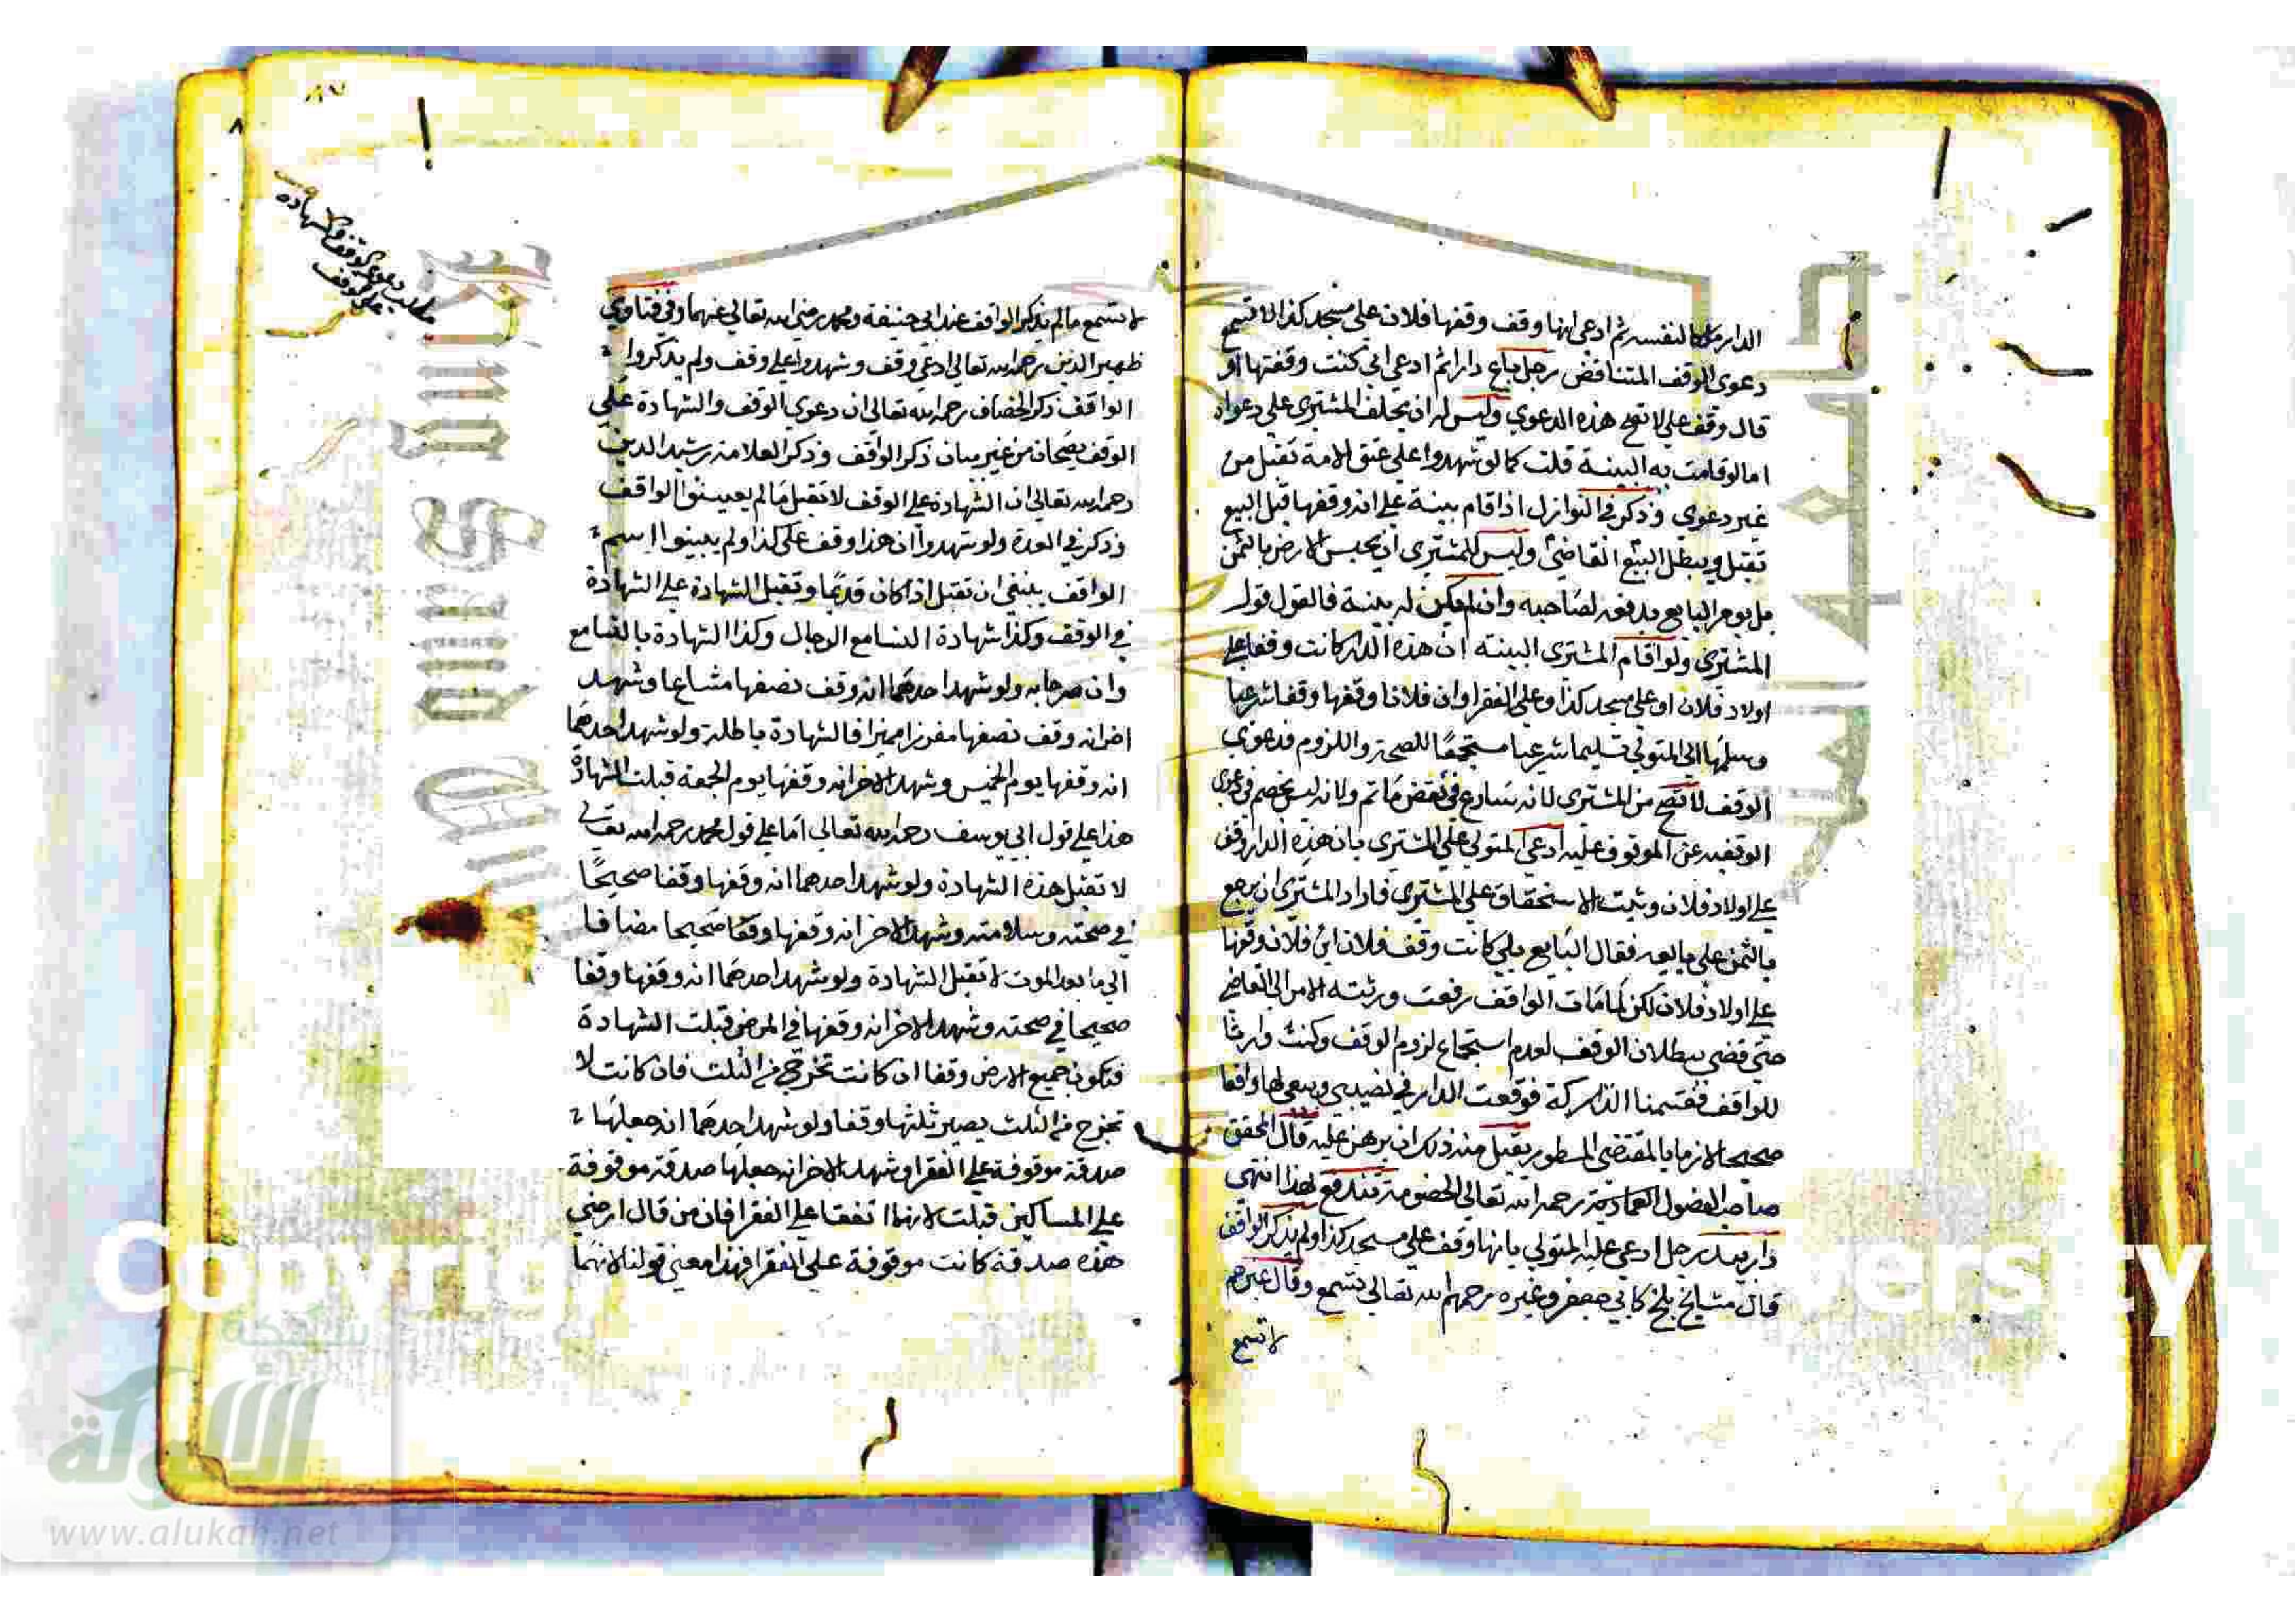 الدار ملكا لنفسه ثم ادعى انها وقف وقفها فلان على مسجد كذا لا تسمع
دعوى الوقف المتناقض رجل باع دارا ثم ادعى اني كنت وقفتها او
قال وقف علي لا تصح هذه الدعوي وليس له ان يحلف المشتري علي دعواه
اما لو قامت به البينة قلت كما لو شهدوا على عتق الامة تقبل من
غير دعوي وذكر في النوازل اذا اقام بينة على انه وقفها قبل البيع
تقبل ويبطل البيع القاضي وليس للمشتري ان يحبس الارض بالثمن
بل يومر البايع بدفعه لصاحبه وان لم يكن له بينة فالقول قول
المشتري ولو اقام المشتري البينة ان هذه الدار كانت وقفا على
اولاد فلان او على مسجد كذا وعلى الفقرا وان فلانا وقفها وقفا شرعيا
وسلمها الى المتولي تسليما شرعيا مستجمعا للصحة واللزوم فدعوي
الوقف لا تصح من المشتري لانه ساع في نقض ما تم ولانه ليس بخصم في دعوي
الوقفية عن الموقوف عليه ادعى المتولي على المشتري بان هذه الدار وقف
على اولاد فلان وثبت الاستحقاق على المشتري فاراد المشتري ان يرجع
بالثمن على بايعه فقال البايع بلي كانت وقف فلان ابن فلان وقفها
على اولاد فلان لكن لما مات الواقف رفعت ورثته الامر الى القاضي
حتى قضى ببطلان الوقف لعدم استجماع لزوم الوقف وكنت وارثا
للواقف فقتسمنا التركة فوقعت الدار في نصيبي وبيعي لها واقعا
صحيحا لازما بالمقتضى المسطور يقبل منه ذلك ان برهن عليه قال المحقق
صاحب الفصول العمادية رحمه الله تعالى الخصومة تندفع لهذا انتهى
دار بيد رجل ادعى عليه المتولي بانها وقف على مسجد كذا ولم يذكر الواقف
قال مشايخ بلخ كابي جعفر وغيره رحمهم الله تعالى تسمع وقال غيرهم
لا تسمع
مطلب دعوى الوقف والشهادة
على الوقف
لا تسمع مالم يذكر الواقف عند ابي حنيفة ومحمد رضي الله تعالى عنهما وفي فتاوي
ظهير الدين رحمه الله تعالى ادعى وقف وشهدوا على وقف ولم يذكروا
الواقف ذكر الخصاف رحمه الله تعالى ان دعوي الوقف والشهادة على
الوقف يصحان من غير بيان ذكر الواقف وذكر العلامة رشيد الدين
رحمه الله تعالى ان الشهادة على الوقف لا تقبل مالم يعينوا الواقف
وذكر في العدة ولو شهدوا ان هذا وقف على كذا ولم يبينوا اسم
الواقف ينبغي ان تقبل اذا كان قديما وتقبل الشهادة على الشهادة
في الوقف وكذا شهادة النسا مع الرجال وكذا الشهادة بالتسامع
وان صرحا به ولو شهد احدهما انه وقف نصفها مشاعا وشهد
اخر انه وقف نصفها مفرزا مميزا فالشهادة باطلة ولو شهد احدهما
انه وقفها يوم الخميس وشهد الاخر انه وقفها يوم الجمعة قبلت الشهادة
هذا على قول ابي يوسف رحمه الله تعالى اما على قول محمد رحمه الله تعالى
لا تقبل هذه الشهادة ولو شهد احدهما انه وقفها وقفا صحيحا
في صحته وسلامته وشهد الاخر انه وقفها وقفا صحيحا مضافا
الي ما بعد الموت لا تقبل الشهادة ولو شهد احدهما انه وقفها وقفا
صحيحا في صحته وشهد الاخر انه وقفها في المرض قبلت الشهادة
فتكون جميع الارض وقفا ان كانت تخرج من الثلث فان كانت لا
تخرج من الثلث يصير ثلثها وقفا ولو شهد احدهما انه جعلها
صدقة موقوفة على الفقرا وشهد الاخر انه جعلها صدقة موقوفة
على المساكين قبلت لانهما اتفقا على الفقرا فان من قال ارضي
هذه صدقة كانت موقوفة على الفقرا فهذا معنى قولنا لانهما
Copyrig
ersity
شبكة
الألوكة
www.alukah.net